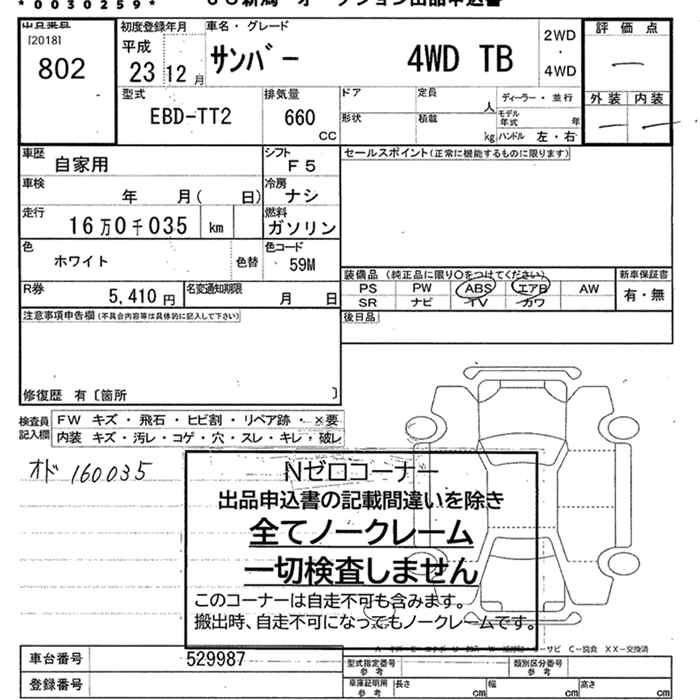 * 0 0 3 0 2 5 9 *
[2018]
802
初度登録年月
平成
23 12 月
車名・グレード
サンバー 4WD TB
2WD
・
4WD
評価点
―
外装 内装
― ―
型式
EBD-TT2
排気量
660
CC
ドア
形状
定員
人
積載
kg
ディーラー・並行
モデル年式 年
ハンドル 左・右
車歴
自家用
シフト
F5
車検
年 月( 日)
冷房
ナシ
走行
16万0千035 km
燃料
ガソリン
色
ホワイト
色替
色コード
59M
R券
5,410 円
名変通知期限
月 日
セールスポイント(正常に機能するものに限ります)
装備品 (純正品に限り○をつけてください)
PS PW ABS エアB AW
SR ナビ TV カワ
新車保証書
有・無
後日品
注意事項申告欄(不具合内容等は具体的に記入して下さい)
修復歴 有〔箇所 〕
検査員記入欄
FW キズ・飛石・ヒビ割・リペア跡・×要
内装 キズ・汚レ・コゲ・穴・スレ・キレ・破レ
オド 160035
Nゼロコーナー
出品申込書の記載間違いを除き
全てノークレーム
一切検査しません
このコーナーは自走不可も含みます。
搬出時、自走不可になってもノークレームです。
C-腐食 XX-交換済
車台番号
529987
登録番号
型式指定番号
参考
類別区分番号
参考
車庫証明用
参考
長さ cm
幅 cm
高さ cm